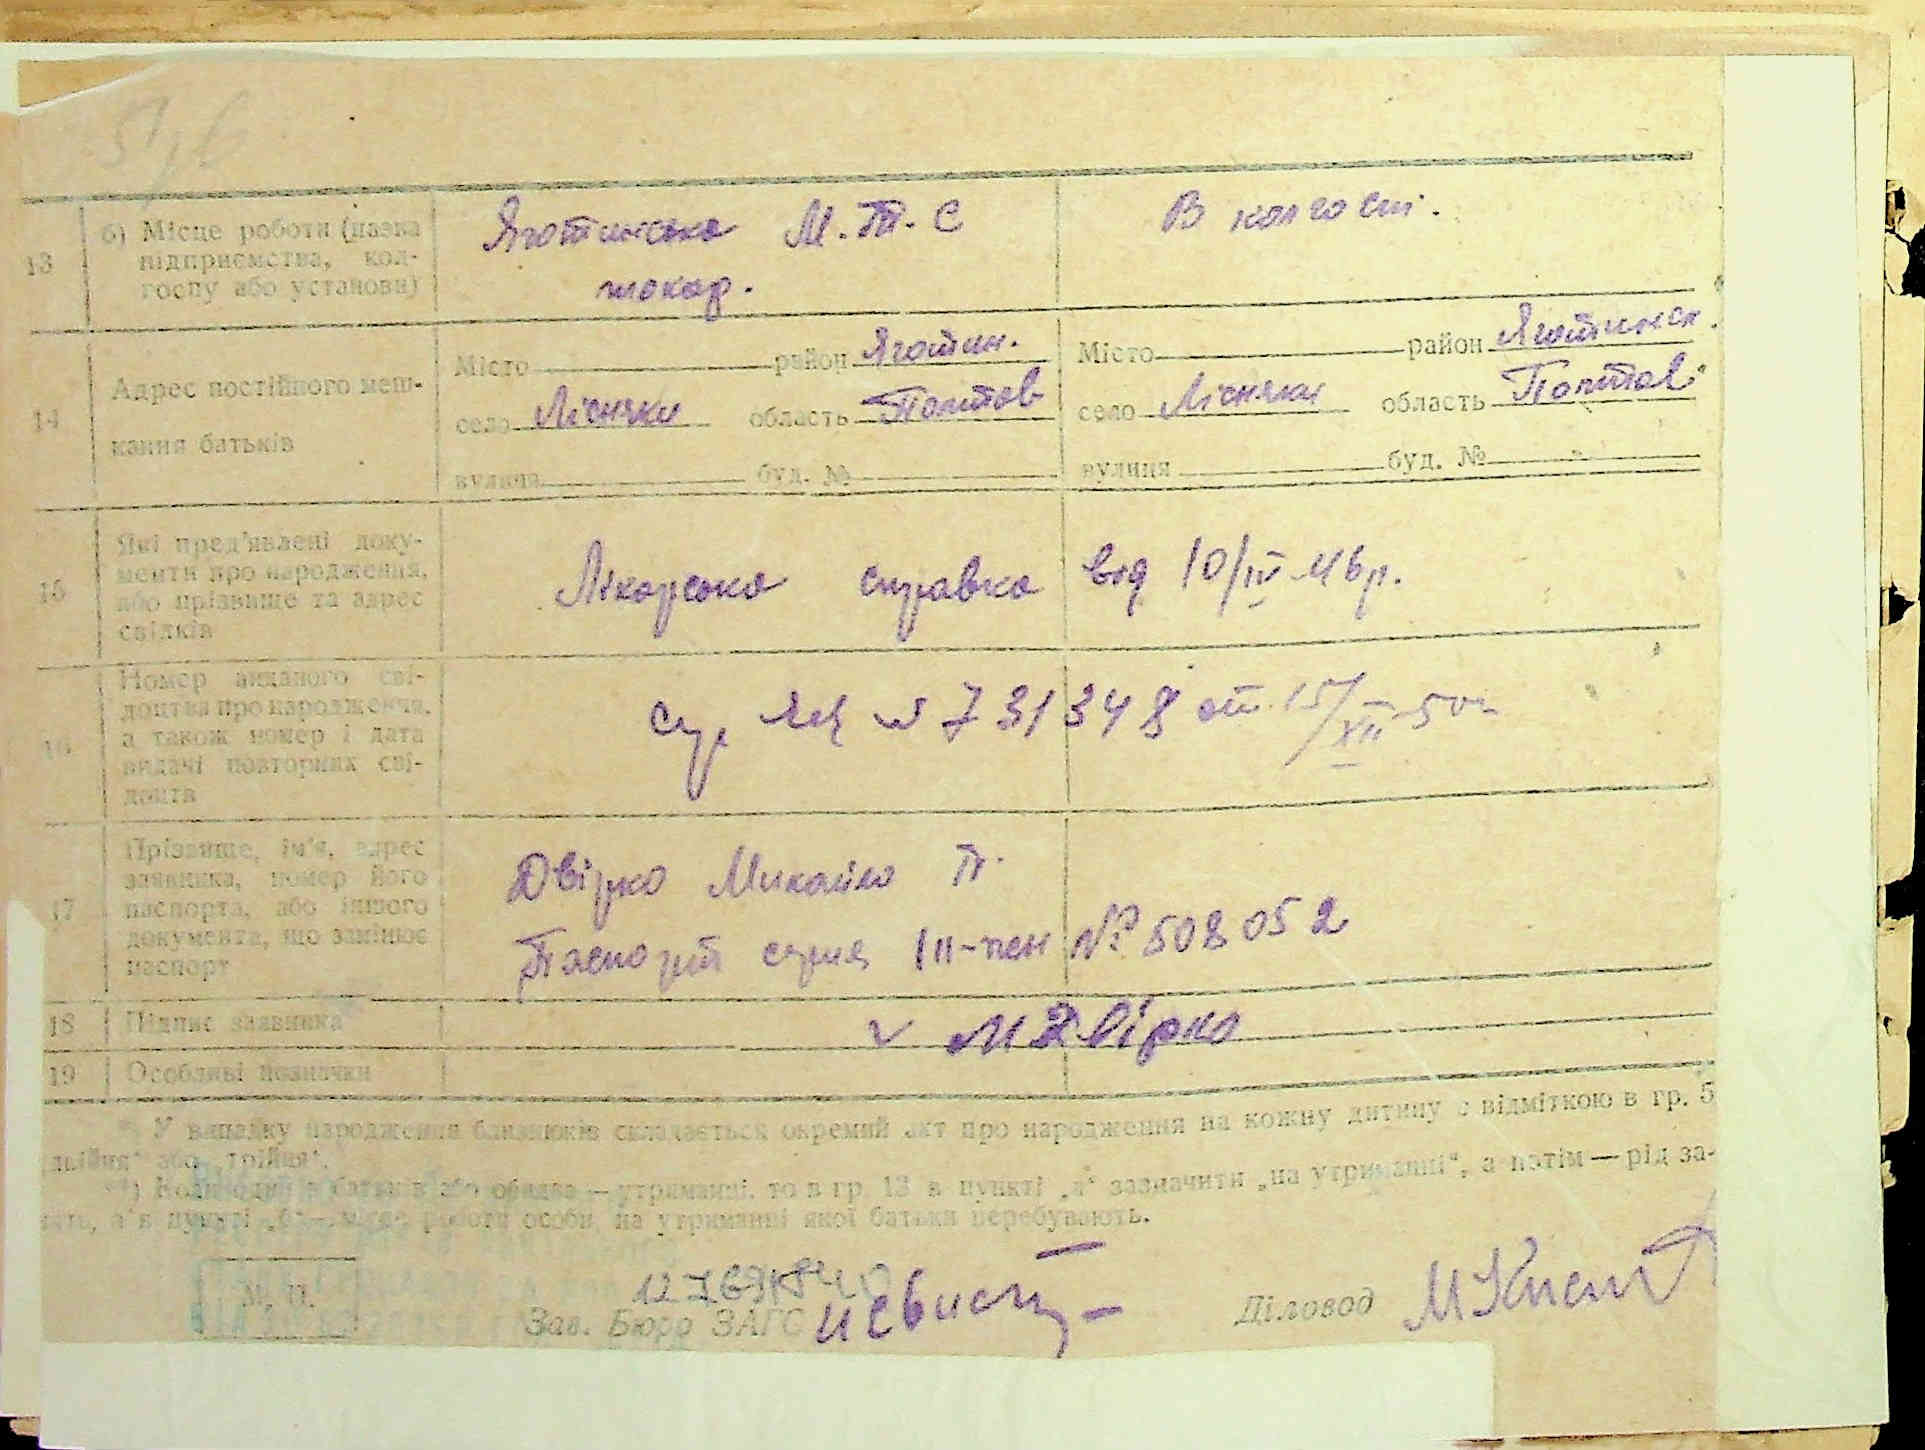 13 б) Місце роботи (назва Яготинська М.Т.С В колгоспі.
підприємства, кол- токар.
госпу або установи)
Місто район Яготин. Місто район Яготинськ.
14 Адрес постійного меш- село Лісняки область Полтов село Лісняки область Полтов.
кання батьків
вулиця буд. № вулиця буд. №
15 Які пред'явлені доку-
менти про народження, Лікарська справка від 10/IV 46 р.
або прізвище та адрес
свідків
16 Номер виданого сві-
доцтва про народження, № 731348 от 15/XII-50
а також номер і дата
видачі повторних сві-
доцтв
17 Прізвище, ім'я, адрес Двірко Михайло П.
заявника, номер його
паспорта, або іншого Паспорт серия III-пен № 508052
документа, що замінює
паспорт
18 Підпис заявника М Двірко
19 Особливі позначки
*) У випадку народження близнюків складається окремий акт про народження на кожну дитину з відміткою в гр. 5
„двійня“ або „трійня“.
**) Коли один з батьків або обидва — утриманці, то в гр. 13 в пункті „а“ зазначити „на утриманні“, а потім — рід за-
нять, а в пункті „б“ — місце роботи особи, на утриманні якої батьки перебувають.
М. П.
Зав. Бюро ЗАГС Діловод